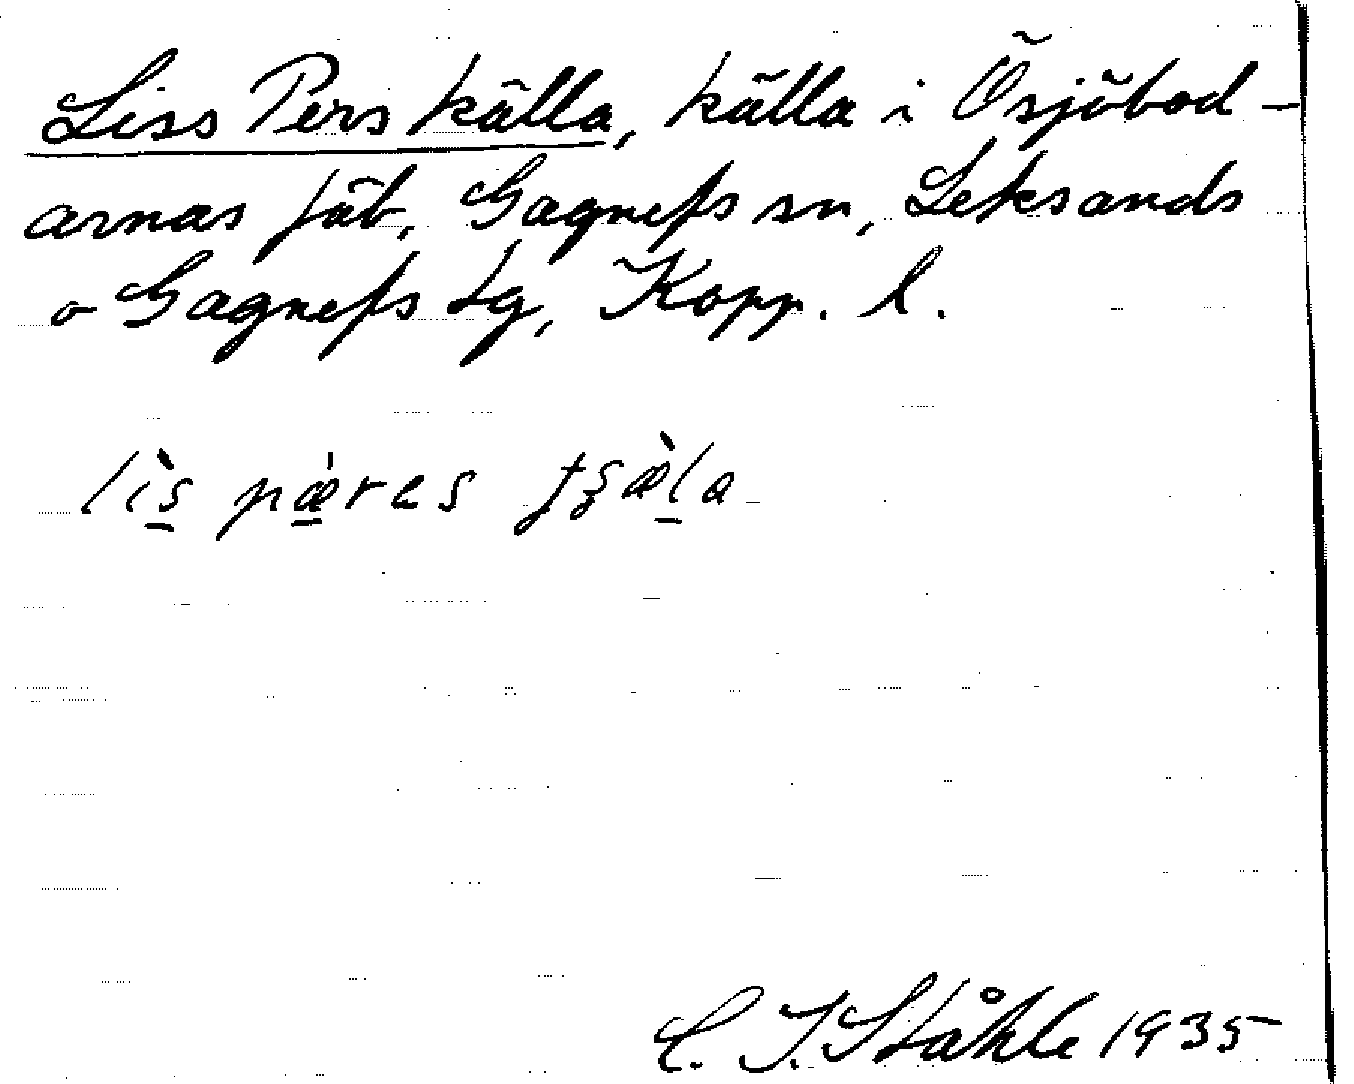 Liss Pers källa, källa i Ösjöbod-
arnas fäb., Gagnefs sn, Leksands
o Gagnefs tg, Kopp. l.
lìs pæ̀res tʂæ̀la
C. I. Ståhle 1935